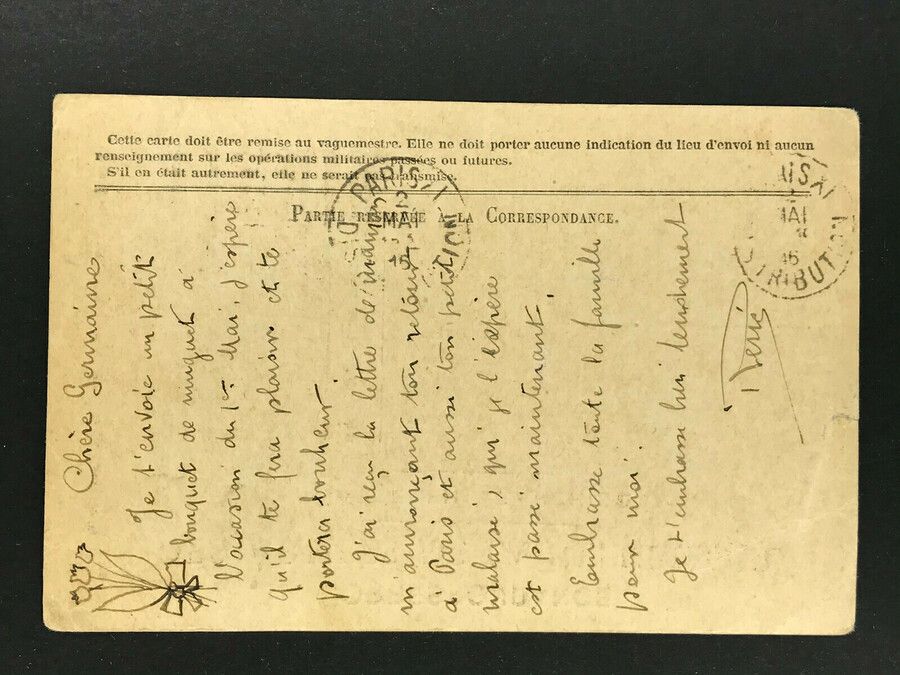 Cette carte doit être remise au vaguemestre. Elle ne doit porter aucune indication du lieu d'envoi ni aucun
renseignement sur les opérations militaires passées ou futures.
S'il en était autrement, elle ne serait pas transmise.
PARTIE RÉSERVÉE A LA CORRESPONDANCE.
PARIS XI
MAI
DISTRIBUTION
MAI
16
Chère Germaine
Je t'envoie un petit
bouquet de muguet à
l'occasion du 1er Mai, j'espère
qu'il te fera plaisir et te
portera bonheur.
J'ai reçu la lettre de maman
m'annonçant ton retour
à Paris et aussi ton petit
malaise, qui je l'espère
est passé maintenant.
Embrasse toute la famille
pour moi.
Je t'embrasse bien tendrement